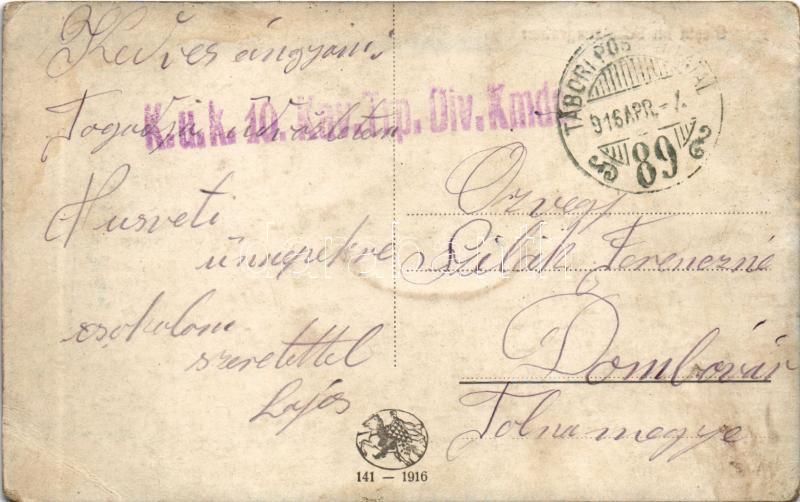 Kedves ángyom!
Fogadja üdvözletem
Husveti
ünnepekre
csokolom
szeretettel
Lajos
K.u.k. 10. Kav. Trp. Div. Kmdo
TÁBORI POS
916 APR.
89
Özvegy
Ferenczné
Dombóvár
Tolnamegye
141 — 1916